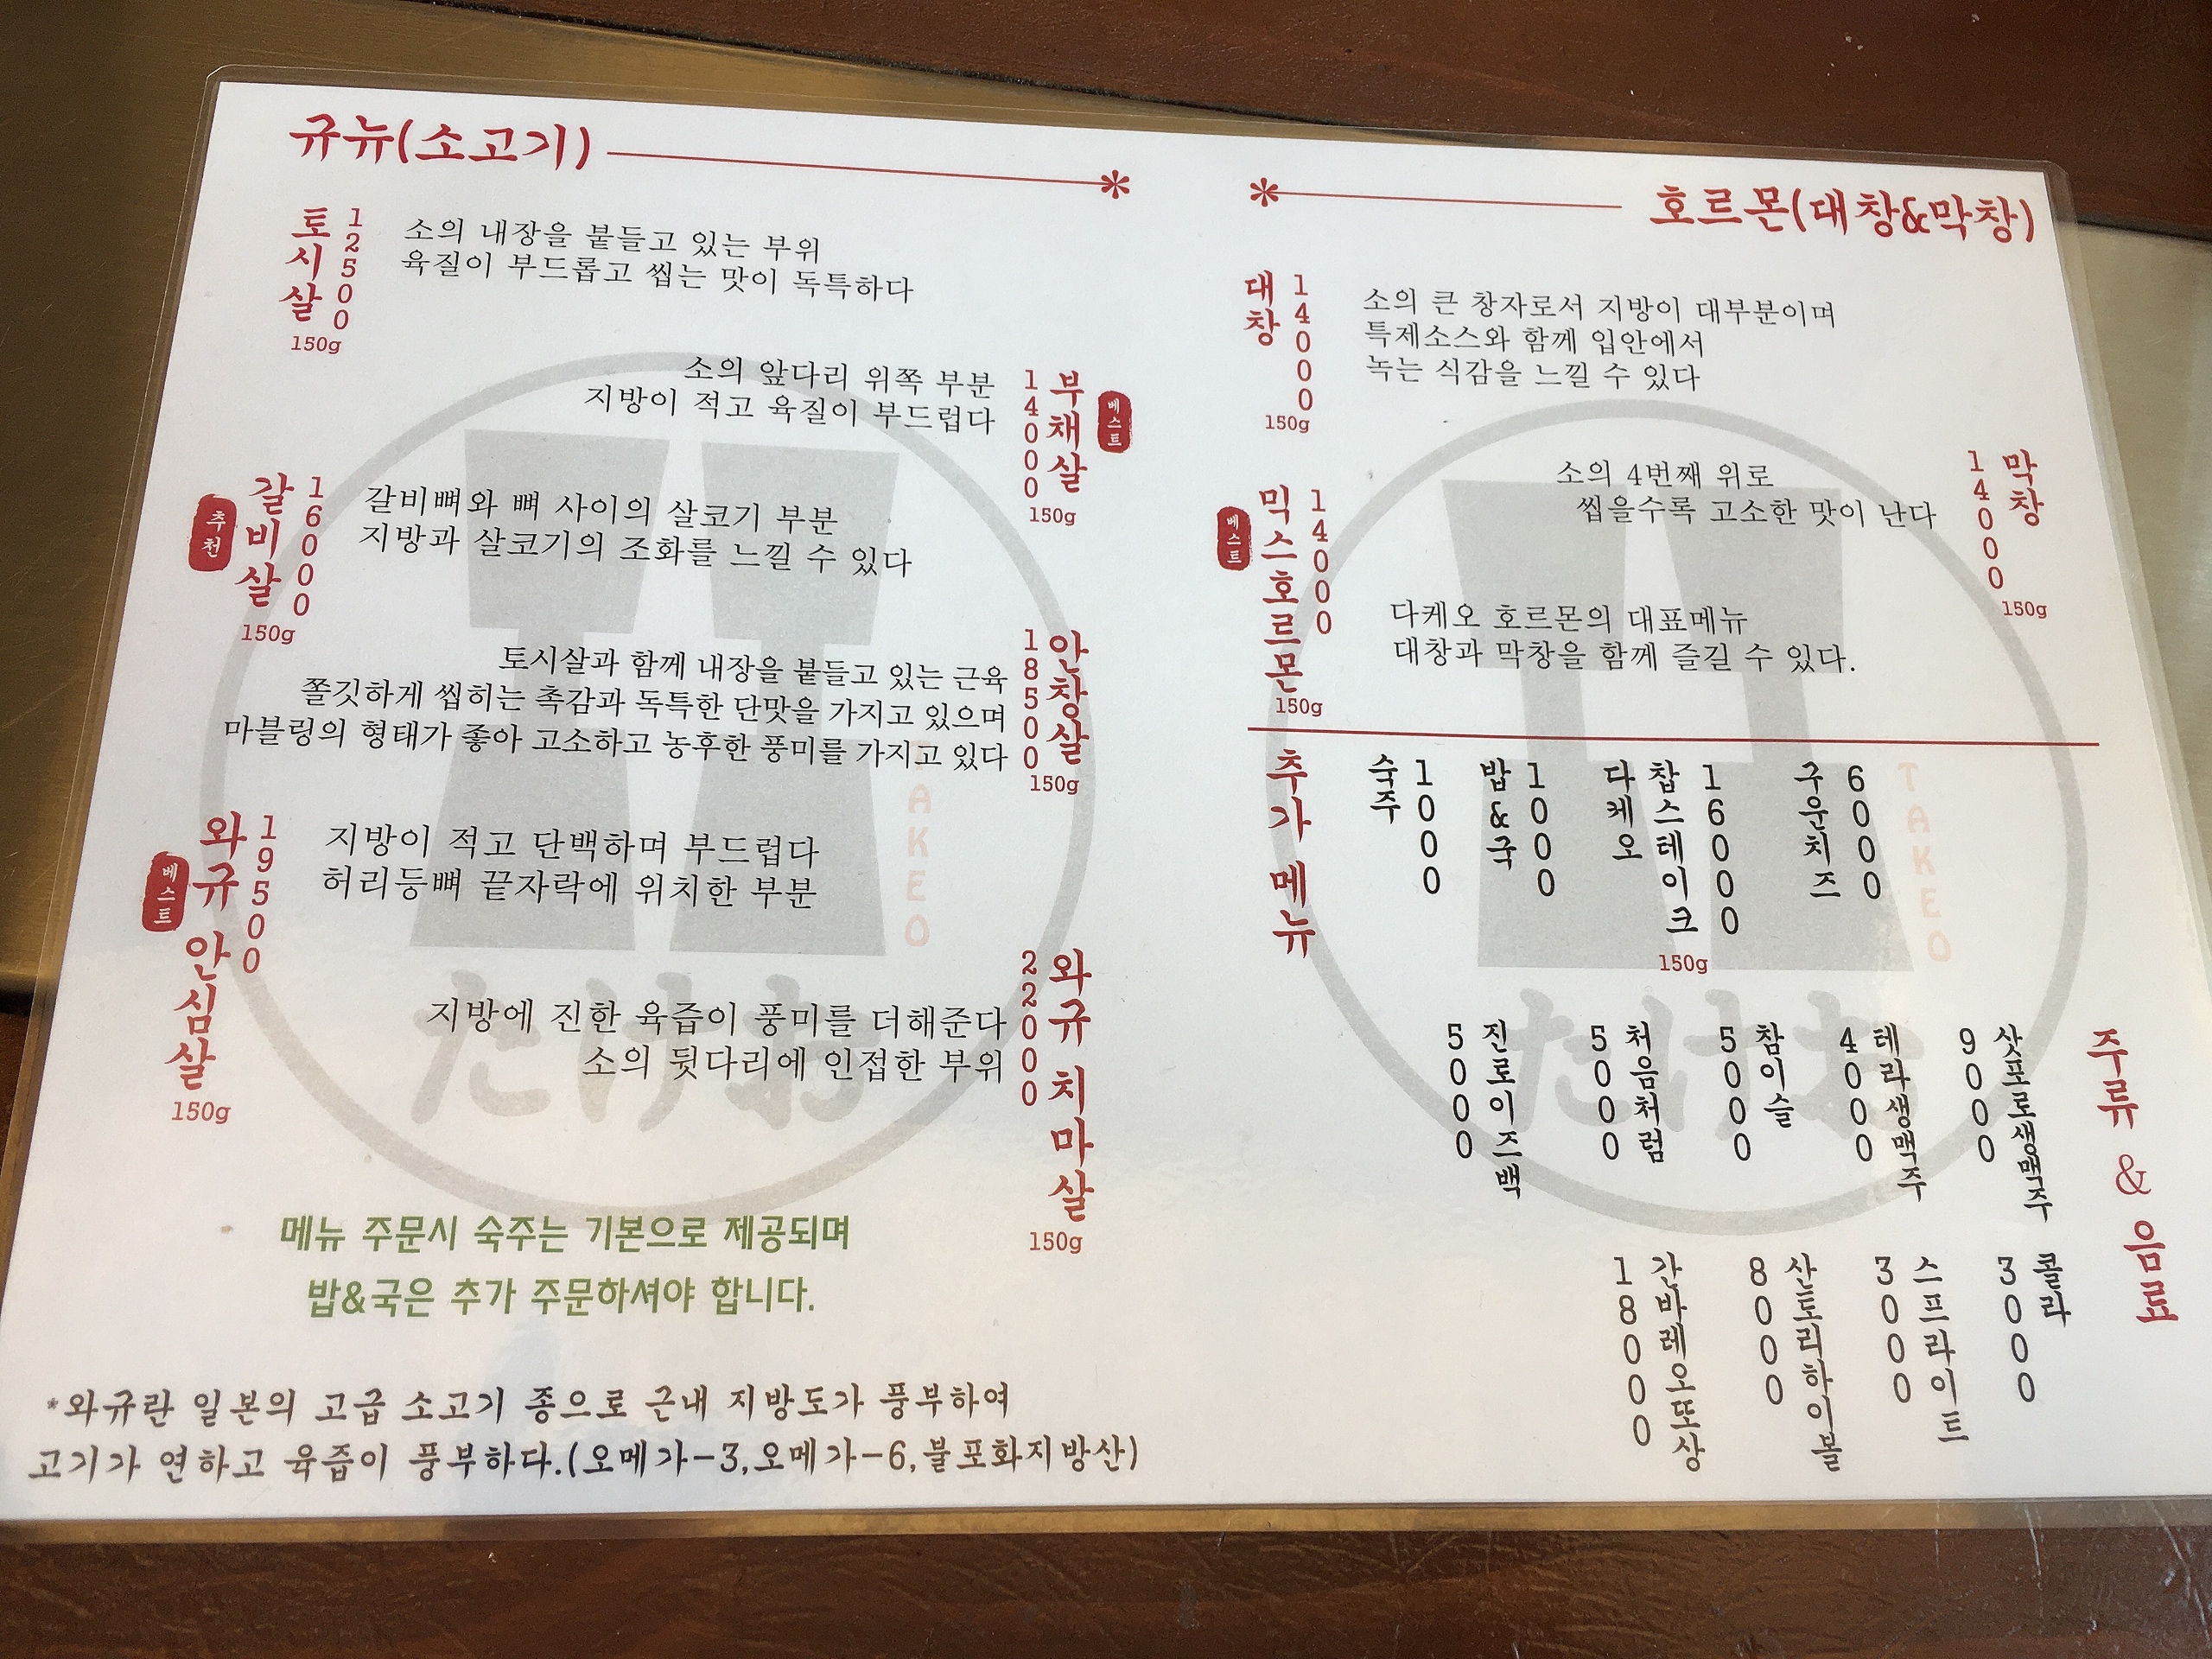 규뉴(소고기)
토시살
12500
150g
소의 내장을 붙들고 있는 부위
육질이 부드롭고 씹는 맛이 독특하다
소의 앞다리 위쪽 부분
지방이 적고 육질이 부드럽다
14000
부채살
베스트
150g
추천
갈비살
16000
150g
갈비뼈와 뼈 사이의 살코기 부분
지방과 살코기의 조화를 느낄 수 있다
토시살과 함께 내장을 붙들고 있는 근육
쫄깃하게 씹히는 촉감과 독특한 단맛을 가지고 있으며
마블링의 형태가 좋아 고소하고 농후한 풍미를 가지고 있다
18500
안창살
150g
베스트
와규 안심살
19500
150g
지방이 적고 단백하며 부드럽다
허리등뼈 끝자락에 위치한 부분
지방에 진한 육즙이 풍미를 더해준다
소의 뒷다리에 인접한 부위
22000
와규 치마살
150g
TAKEO
たけお
메뉴 주문시 숙주는 기본으로 제공되며
밥&국은 추가 주문하셔야 합니다.
*와규란 일본의 고급 소고기 종으로 근내 지방도가 풍부하여
고기가 연하고 육즙이 풍부하다.(오메가-3,오메가-6,불포화지방산)
호르몬(대창&막창)
대창
14000
150g
소의 큰 창자로서 지방이 대부분이며
특제소스와 함께 입안에서
녹는 식감을 느낄 수 있다
소의 4번째 위로
씹을수록 고소한 맛이 난다
14000
막창
150g
베스트
믹스호르몬
14000
150g
다케오 호르몬의 대표메뉴
대창과 막창을 함께 즐길 수 있다.
추가 메뉴
숙주
1000
밥&국
1000
다케오
찹스테이크
16000
150g
구운치즈
6000
TAKEO
たけお
주류 & 음료
삿포로생맥주
9000
테라생맥주
4000
참이슬
5000
처음처럼
5000
진로이즈백
5000
콜라
3000
스프라이트
3000
산토리하이볼
8000
간바레오또상
18000